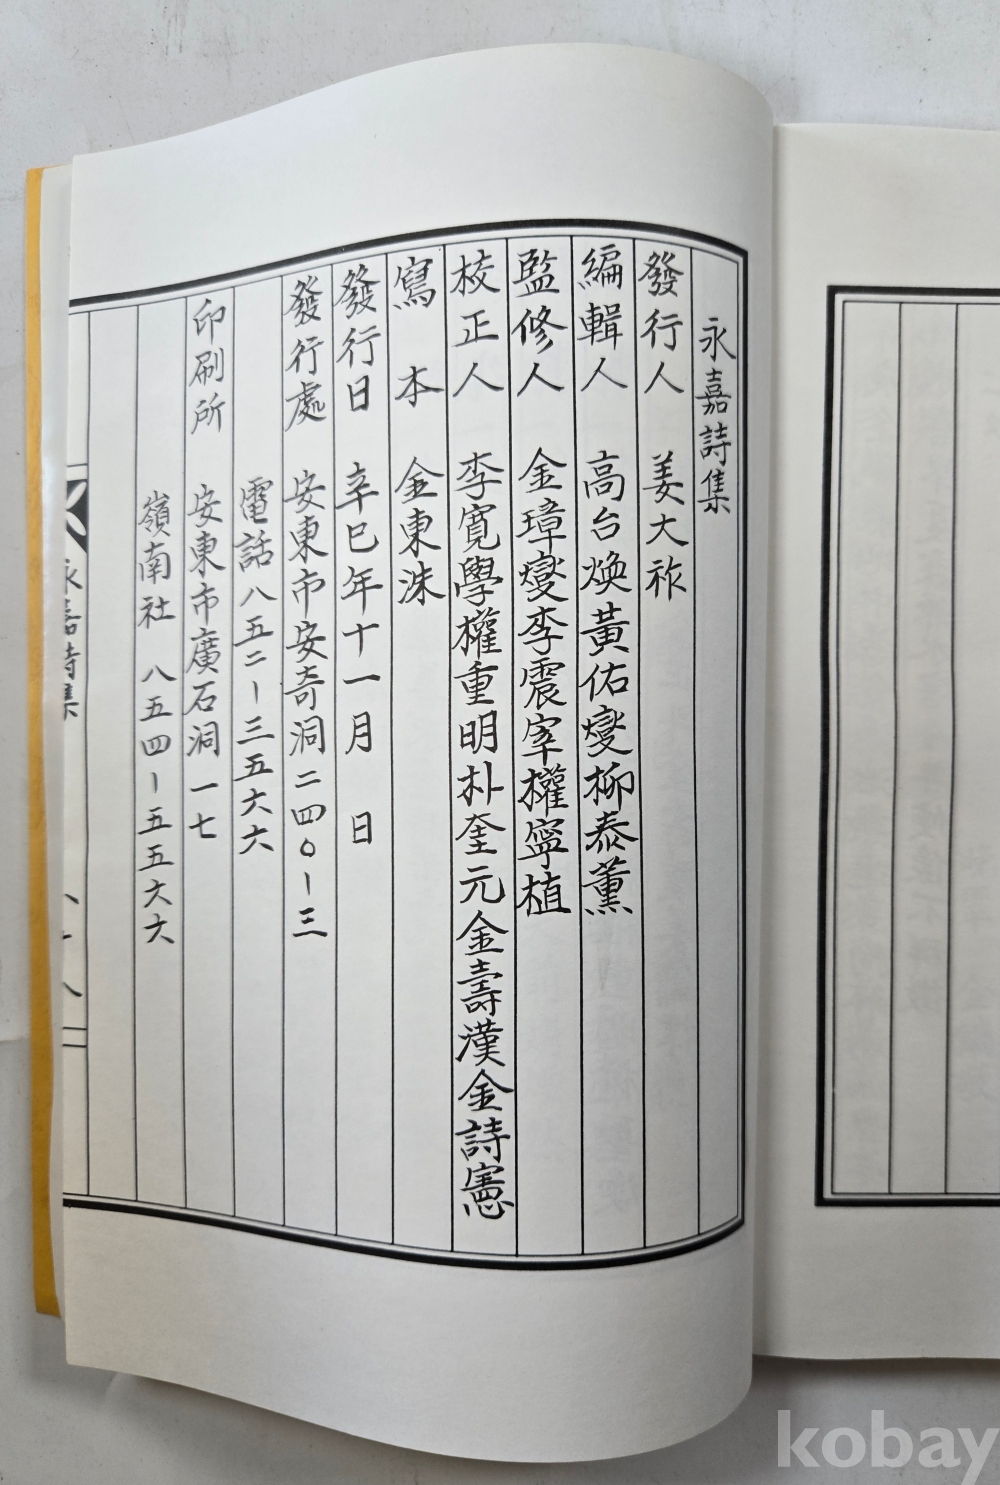 永嘉詩集
發行人 姜大祚
編輯人 高台煥 黃佑燮 柳泰薰
監修人 金璋燮 李震宰 權寧植
校正人 李寬學 權重明 朴奎元 金壽漢 金詩憲
寫本 金東洙
發行日 辛巳年十一月 日
發行處 安東市安奇洞二四〇-三
電話八五二-三五六六
印刷所 安東市廣石洞一一七
嶺南社 八五四-五五六六
永嘉詩集
kobay